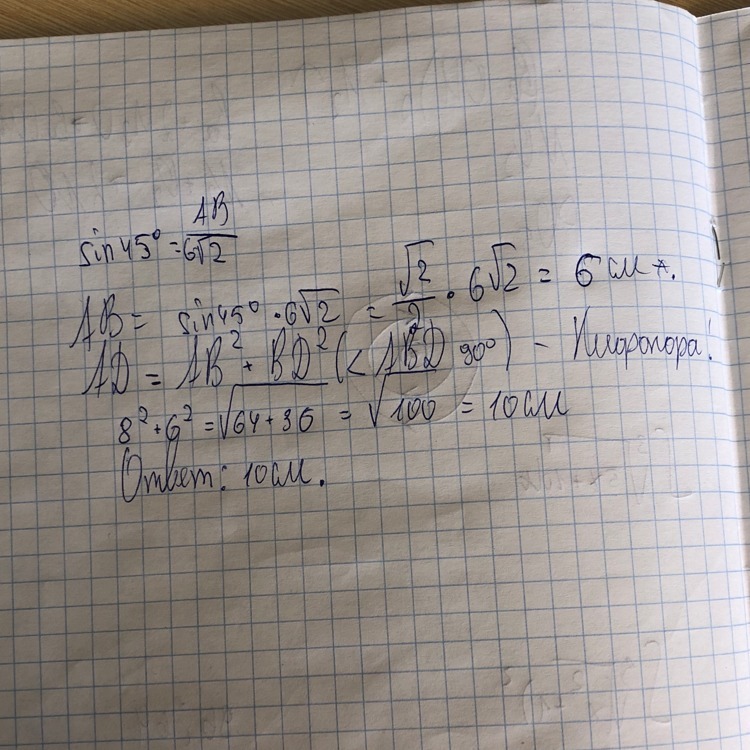 sin45° = AB/6√2
AB = sin45° · 6√2 = √2/2 · 6√2 = 6 см.
AD = AB² + BD² (< ABD 90°) -
8² + 6² = √64+36 = √100 = 10 см
Ответ: 10 см.